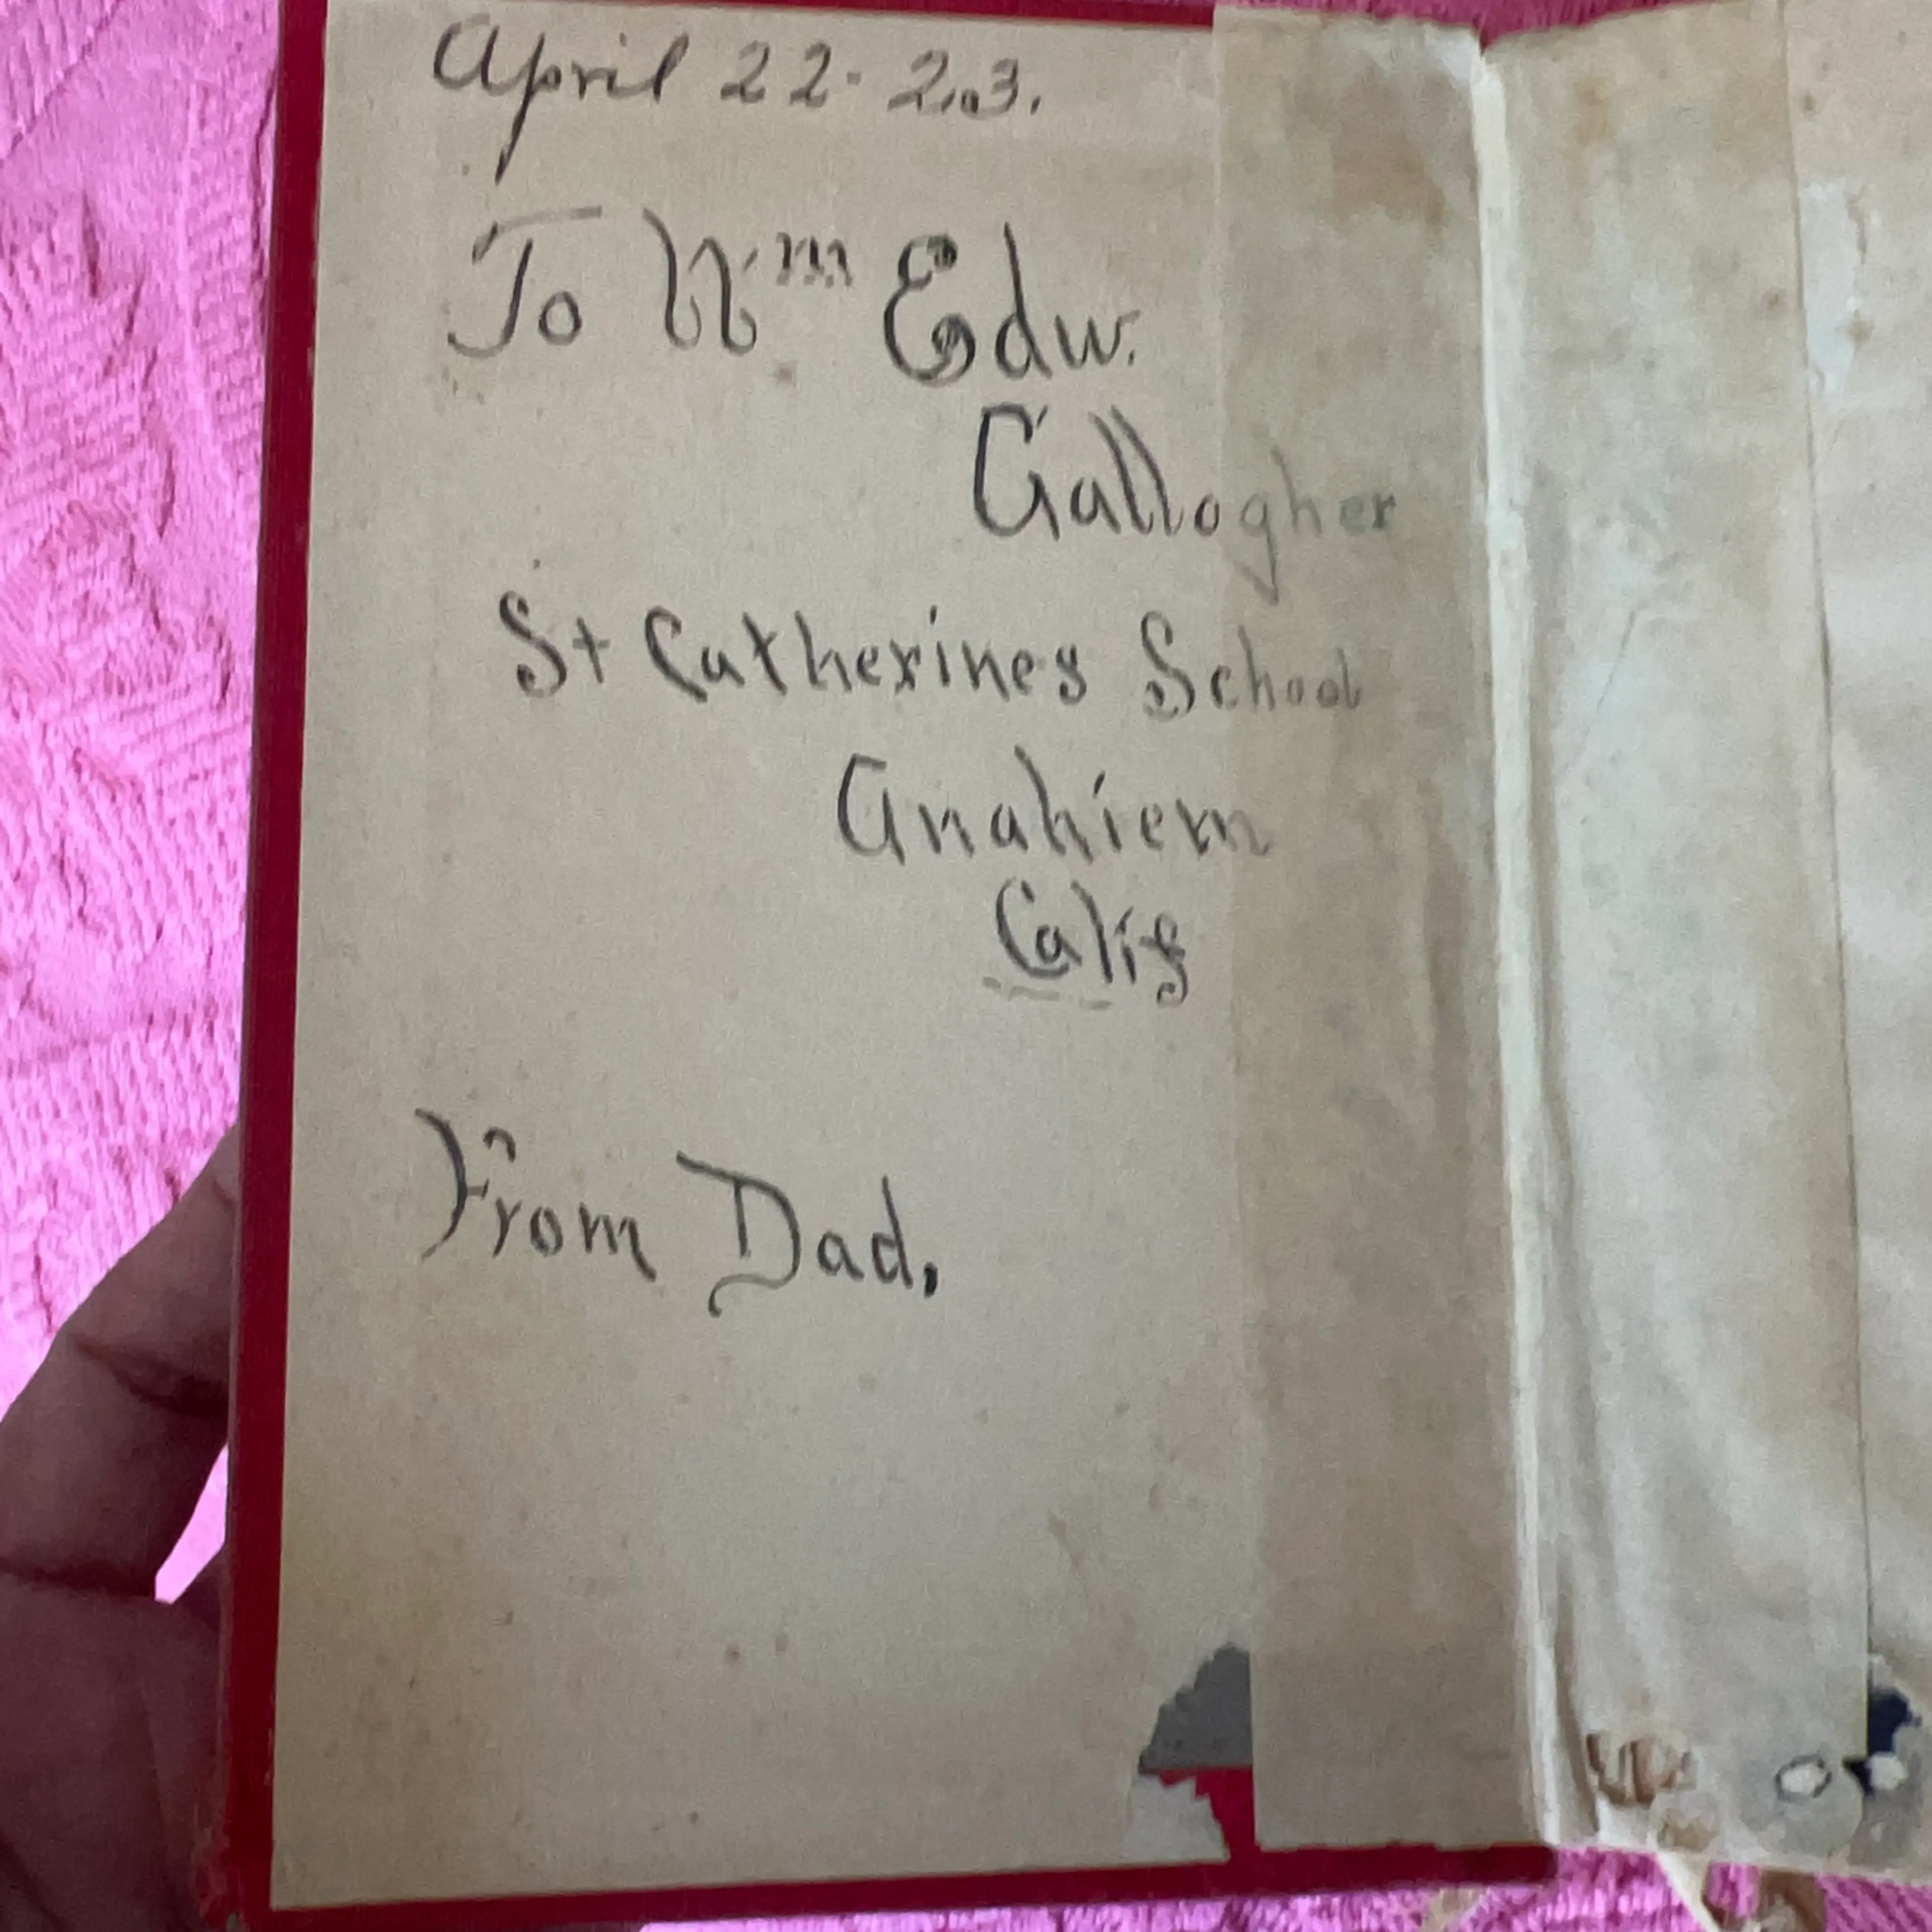 April 22-23.
To Wm Edw.
Gallogher
St Catherines School
Anahiem
Calif
From Dad.